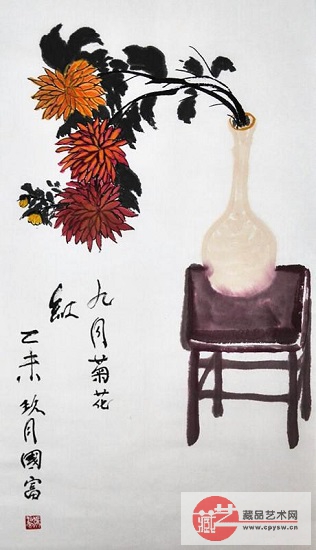 九月菊花
红
乙未玖月國富
藏艺
藏品艺术网
www.cpysw.cn